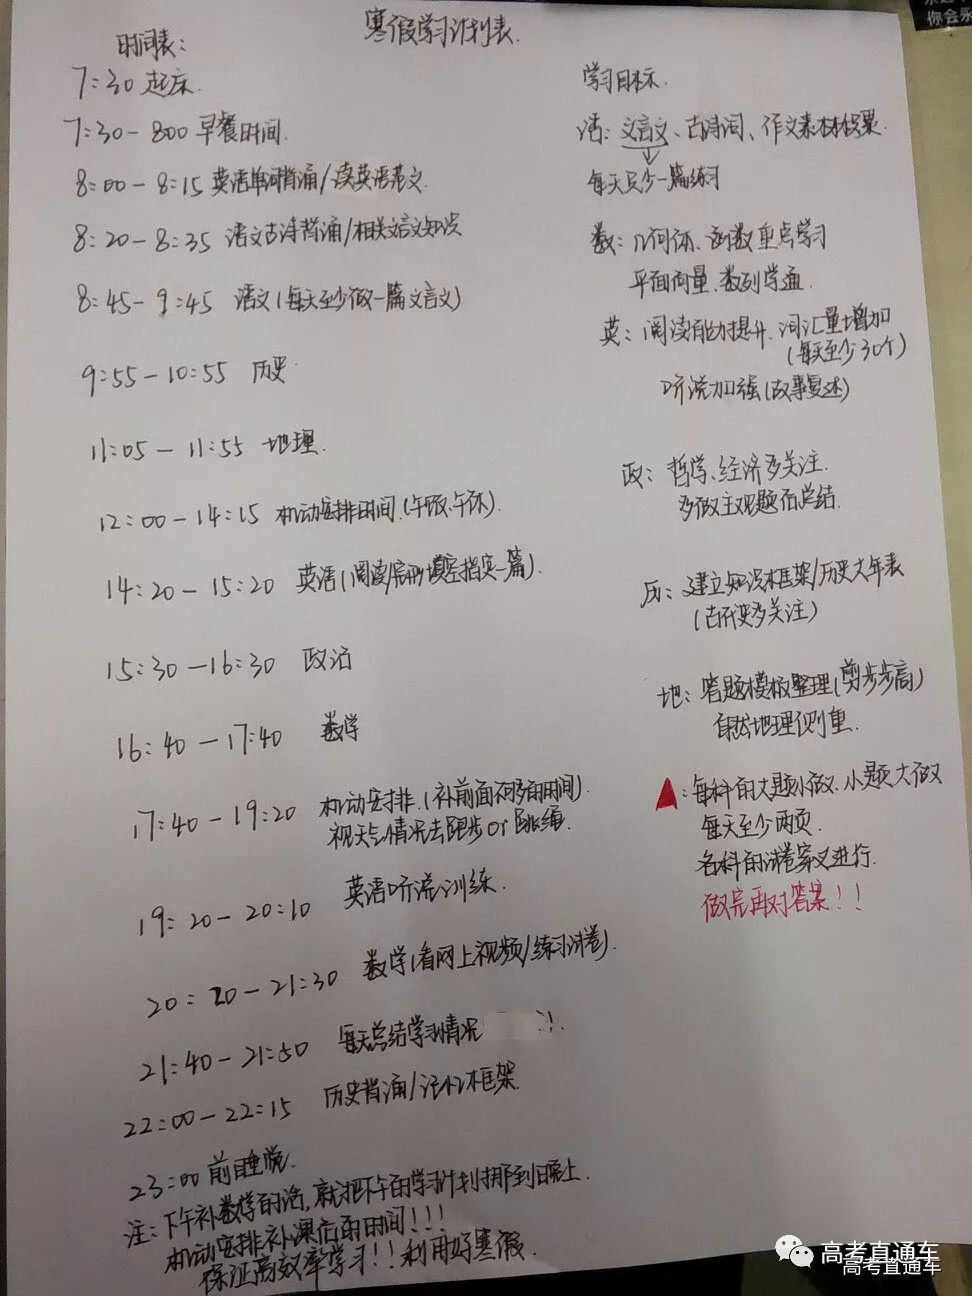 寒假学习计划表.
时间表:
7:30 起床.
7:30-800 早餐时间.
8:00-8:15 英语单词背诵/读英语范文.
8:20-8:35 语文古诗背诵/相关文言文知识
8:45-9:45 语文(每天至少做一篇文言文)
9:55-10:55 历史
11:05-11:55 地理.
12:00-14:15 机动安排时间.(午饭、午休).
14:20-15:20 英语(阅读/完形填空指定一篇).
15:30-16:30 政治
16:40-17:40 数学
17:40-19:20 机动安排.(补前面不够的时间).
视天气情况去跑步or跳绳.
19:20-20:10 英语听说训练.
20:20-21:30 数学(看网上视频/练习试卷).
21:40-21:50 每天总结学习情况
22:00-22:15 历史背诵/记忆框架.
23:00前睡觉.
注:下午补数学的话,就把下午的学习计划挪到晚上.
机动安排补课后的时间!!!
保证高效率学习!!利用好寒假.
学习目标.
语:文言文、古诗词、作文素材积累.
每天至少一篇练习
数:几何体、函数重点学习
平面向量、数列学通.
英:阅读能力提升、词汇量增加
(每天至少30个)
听说加强(故事复述)
政:哲学、经济多关注.
多做主观题后总结.
历:建立知识框架/历史大年表
(古代史多关注)
地:答题模板整理(剪步步高)
自然地理侧重.
▲:每科的大题小做、小题大做
每天至少两页.
各科的试卷穿叉进行.
做完再对答案!!
你会永
高考直通车
高考直通车